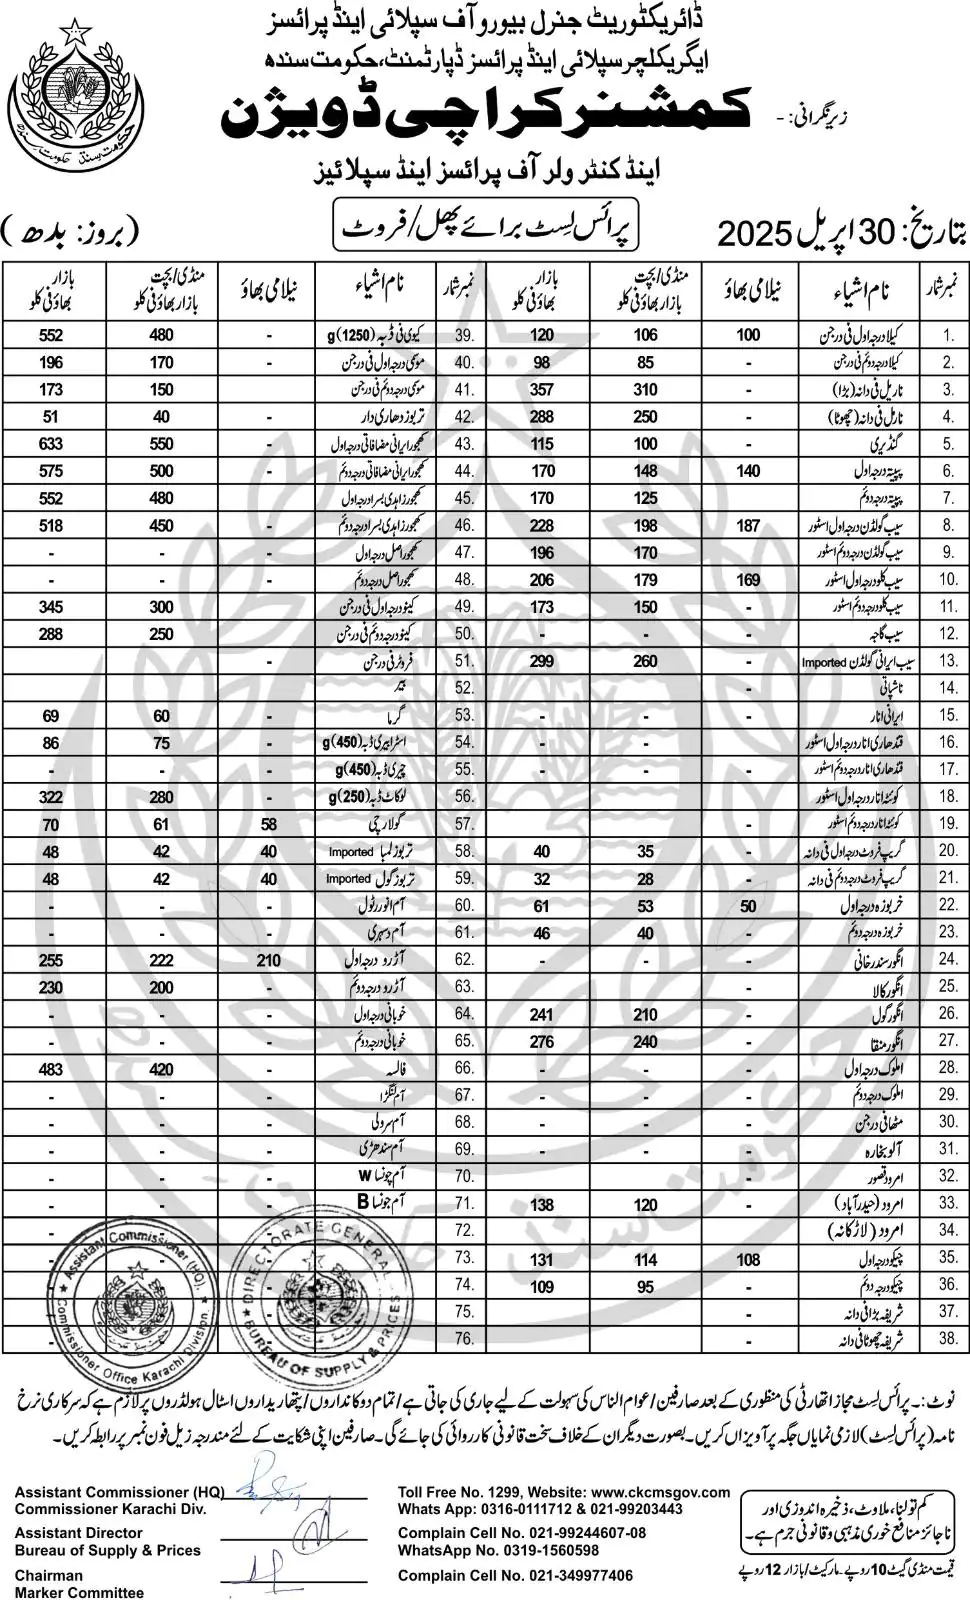 ڈائریکٹوریٹ جنرل بیورو آف سپلائی اینڈ پرائسز
ایگریکلچر سپلائی اینڈ پرائسز ڈپارٹمنٹ، حکومت سندھ
زیر نگرانی: -
کمشنر کراچی ڈویژن
اینڈ کنٹرولر آف پرائسز اینڈ سپلائیز
بتاریخ: 30 اپریل 2025
پرائس لسٹ برائے پھل/فروٹ
(بروز: بدھ)
نمبر شمار نام اشیاء نیلامی بھاؤ منڈی/بچت بازار بھاؤ فی کلو بازار بھاؤ فی کلو
1. کیلا درجہ اول فی درجن 100 106 120
2. کیلا درجہ دوئم فی درجن - 85 98
3. ناریل فی دانہ (بڑا) - 310 357
4. ناریل فی دانہ (چھوٹا) - 250 288
5. گنڈیری - 100 115
6. پپیتہ درجہ اول 140 148 170
7. پپیتہ درجہ دوئم - 125 170
8. سیب گولڈن درجہ اول اسٹور 187 198 228
9. سیب گولڈن درجہ دوئم اسٹور - 170 196
10. سیب کلو درجہ اول اسٹور 169 179 206
11. سیب کلو درجہ دوئم اسٹور - 150 173
12. سیب گاجہ - - -
13. سیب ایرانی گولڈن Imported - 260 299
14. ناشپاتی -
15. ایرانی انار - - -
16. قندھاری انار درجہ اول اسٹور - - -
17. قندھاری انار درجہ دوئم اسٹور - - -
18. کوئٹہ انار درجہ اول اسٹور
19. کوئٹہ انار درجہ دوئم اسٹور -
20. گریپ فروٹ درجہ اول فی دانہ - 35 40
21. گریپ فروٹ درجہ دوئم فی دانہ - 28 32
22. خربوزہ درجہ اول 50 53 61
23. خربوزہ درجہ دوئم - 40 46
24. انگور سندرخانی - - -
25. انگور کالا -
26. انگور گول - 210 241
27. انگور منقا - 240 276
28. املوک درجہ اول - - -
29. املوک درجہ دوئم - - -
30. مٹھا فی درجن - - -
31. آلو بخارہ - - -
32. امرود قصور -
33. امرود (حیدرآباد) - 120 138
34. امرود (لاڑکانہ)
35. چیکو درجہ اول 108 114 131
36. چیکو درجہ دوئم - 95 109
37. شریفہ بڑا فی دانہ -
38. شریفہ چھوٹا فی دانہ -
نمبر شمار نام اشیاء نیلامی بھاؤ منڈی/بچت بازار بھاؤ فی کلو بازار بھاؤ فی کلو
39. کیوی فی ڈبہ (1250)g - 480 552
40. موسمی درجہ اول فی درجن - 170 196
41. موسمی درجہ دوئم فی درجن - 150 173
42. تربوز دھاری دار - 40 51
43. کھجور ایرانی مضافاتی درجہ اول - 550 633
44. کھجور ایرانی مضافاتی درجہ دوئم - 500 575
45. کھجور زاہدی بسرا درجہ اول - 480 552
46. کھجور زاہدی بسرا درجہ دوئم - 450 518
47. کھجور اصل درجہ اول - - -
48. کھجور اصل درجہ دوئم - - -
49. کینو درجہ اول فی درجن - 300 345
50. کینو درجہ دوئم فی درجن - 250 288
51. فروٹر فی درجن -
52. بیر
53. گرما - 60 69
54. اسٹرابیری ڈبہ (450)g - 75 86
55. چیری ڈبہ (450)g - - -
56. لوکاٹ ڈبہ (250)g - 280 322
57. گولارچی 58 61 70
58. تربوز لمبا Imported 40 42 48
59. تربوز گول Imported 40 42 48
60. آم انور رٹول - - -
61. آم دسہری - - -
62. آڑو درجہ اول 210 222 255
63. آڑو درجہ دوئم - 200 230
64. خوبانی درجہ اول - - -
65. خوبانی درجہ دوئم - - -
66. فالسہ - 420 483
67. آم لنگڑا - - -
68. آم سرولی - - -
69. آم سندھڑی - - -
70. آم چونسا W - - -
71. آم چونسا B - - -
72.
73.
74.
75.
76.
Assistant Commissioner (HQ).
Commissioner Office Karachi Division.
DIRECTORATE GENERAL
BUREAU OF SUPPLY & PRICES
نوٹ:۔ پرائس لسٹ مجاز اتھارٹی کی منظوری کے بعد صارفین/عوام الناس کی سہولت کے لیے جاری کی جاتی ہے/تمام دوکانداروں/پتھاریداروں اسٹال ہولڈروں پر لازم ہے کہ سرکاری نرخ
نامہ (پرائس لسٹ) لازمی نمایاں جگہ پر آویزاں کریں۔ بصورت دیگر ان کے خلاف سخت قانونی کارروائی کی جائے گی۔ صارفین اپنی شکایت کے لئے مندرجہ زیل فون نمبر پر رابطہ کریں۔
Assistant Commissioner (HQ)
Commissioner Karachi Div.
Assistant Director
Bureau of Supply & Prices
Chairman
Marker Committee
Toll Free No. 1299, Website: www.ckcmsgov.com
Whats App: 0316-0111712 & 021-99203443
Complain Cell No. 021-99244607-08
WhatsApp No. 0319-1560598
Complain Cell No. 021-349977406
کم تولنا، ملاوٹ، ذخیرہ اندوزی اور
ناجائز منافع خوری مذہبی و قانونی جرم ہے۔
قیمت منڈی گیٹ 10 روپے۔ مارکیٹ/بازار 12 روپے